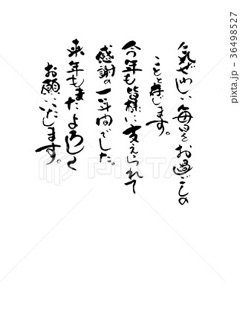 気ぜわしい毎日をお過ごしの
ことと存じます。
今年も皆様に支えられて
感謝の一年間でした。
来年もまたよろしく
お願いいたします。
PIXTA
pixta.jp - 36498527